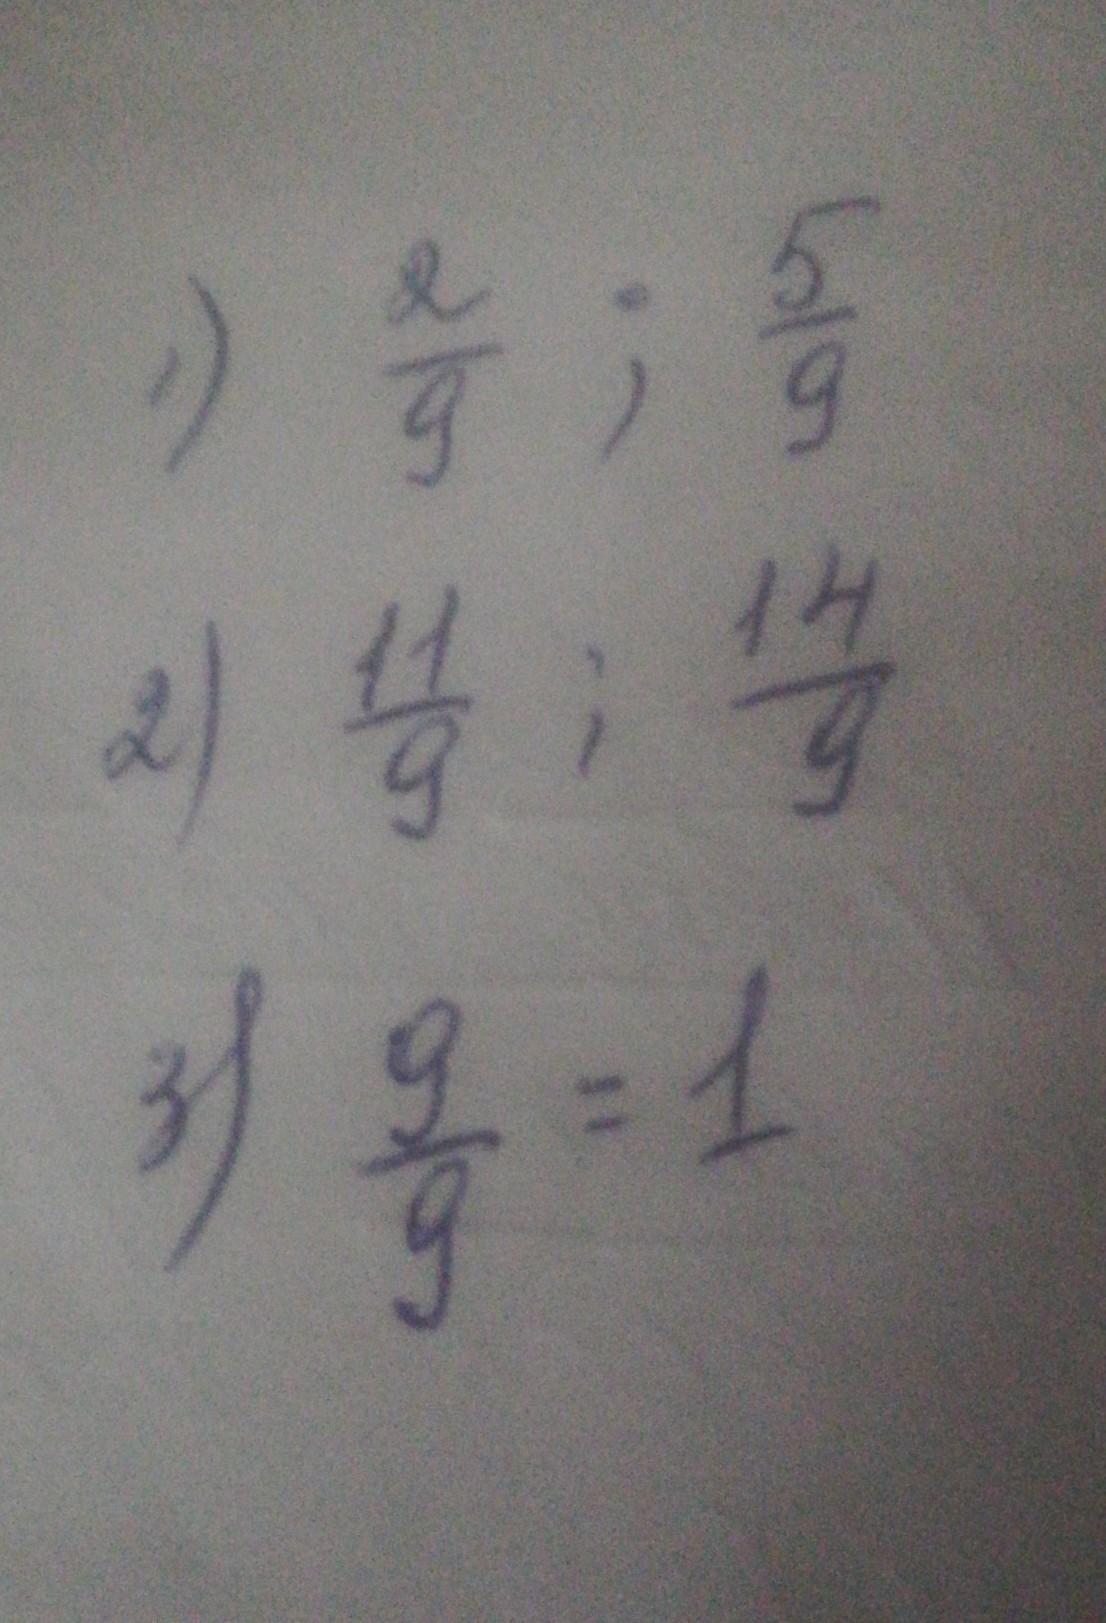 1) 2/9 ; 5/9
2) 11/9 ; 14/9
3) 9/9 = 1